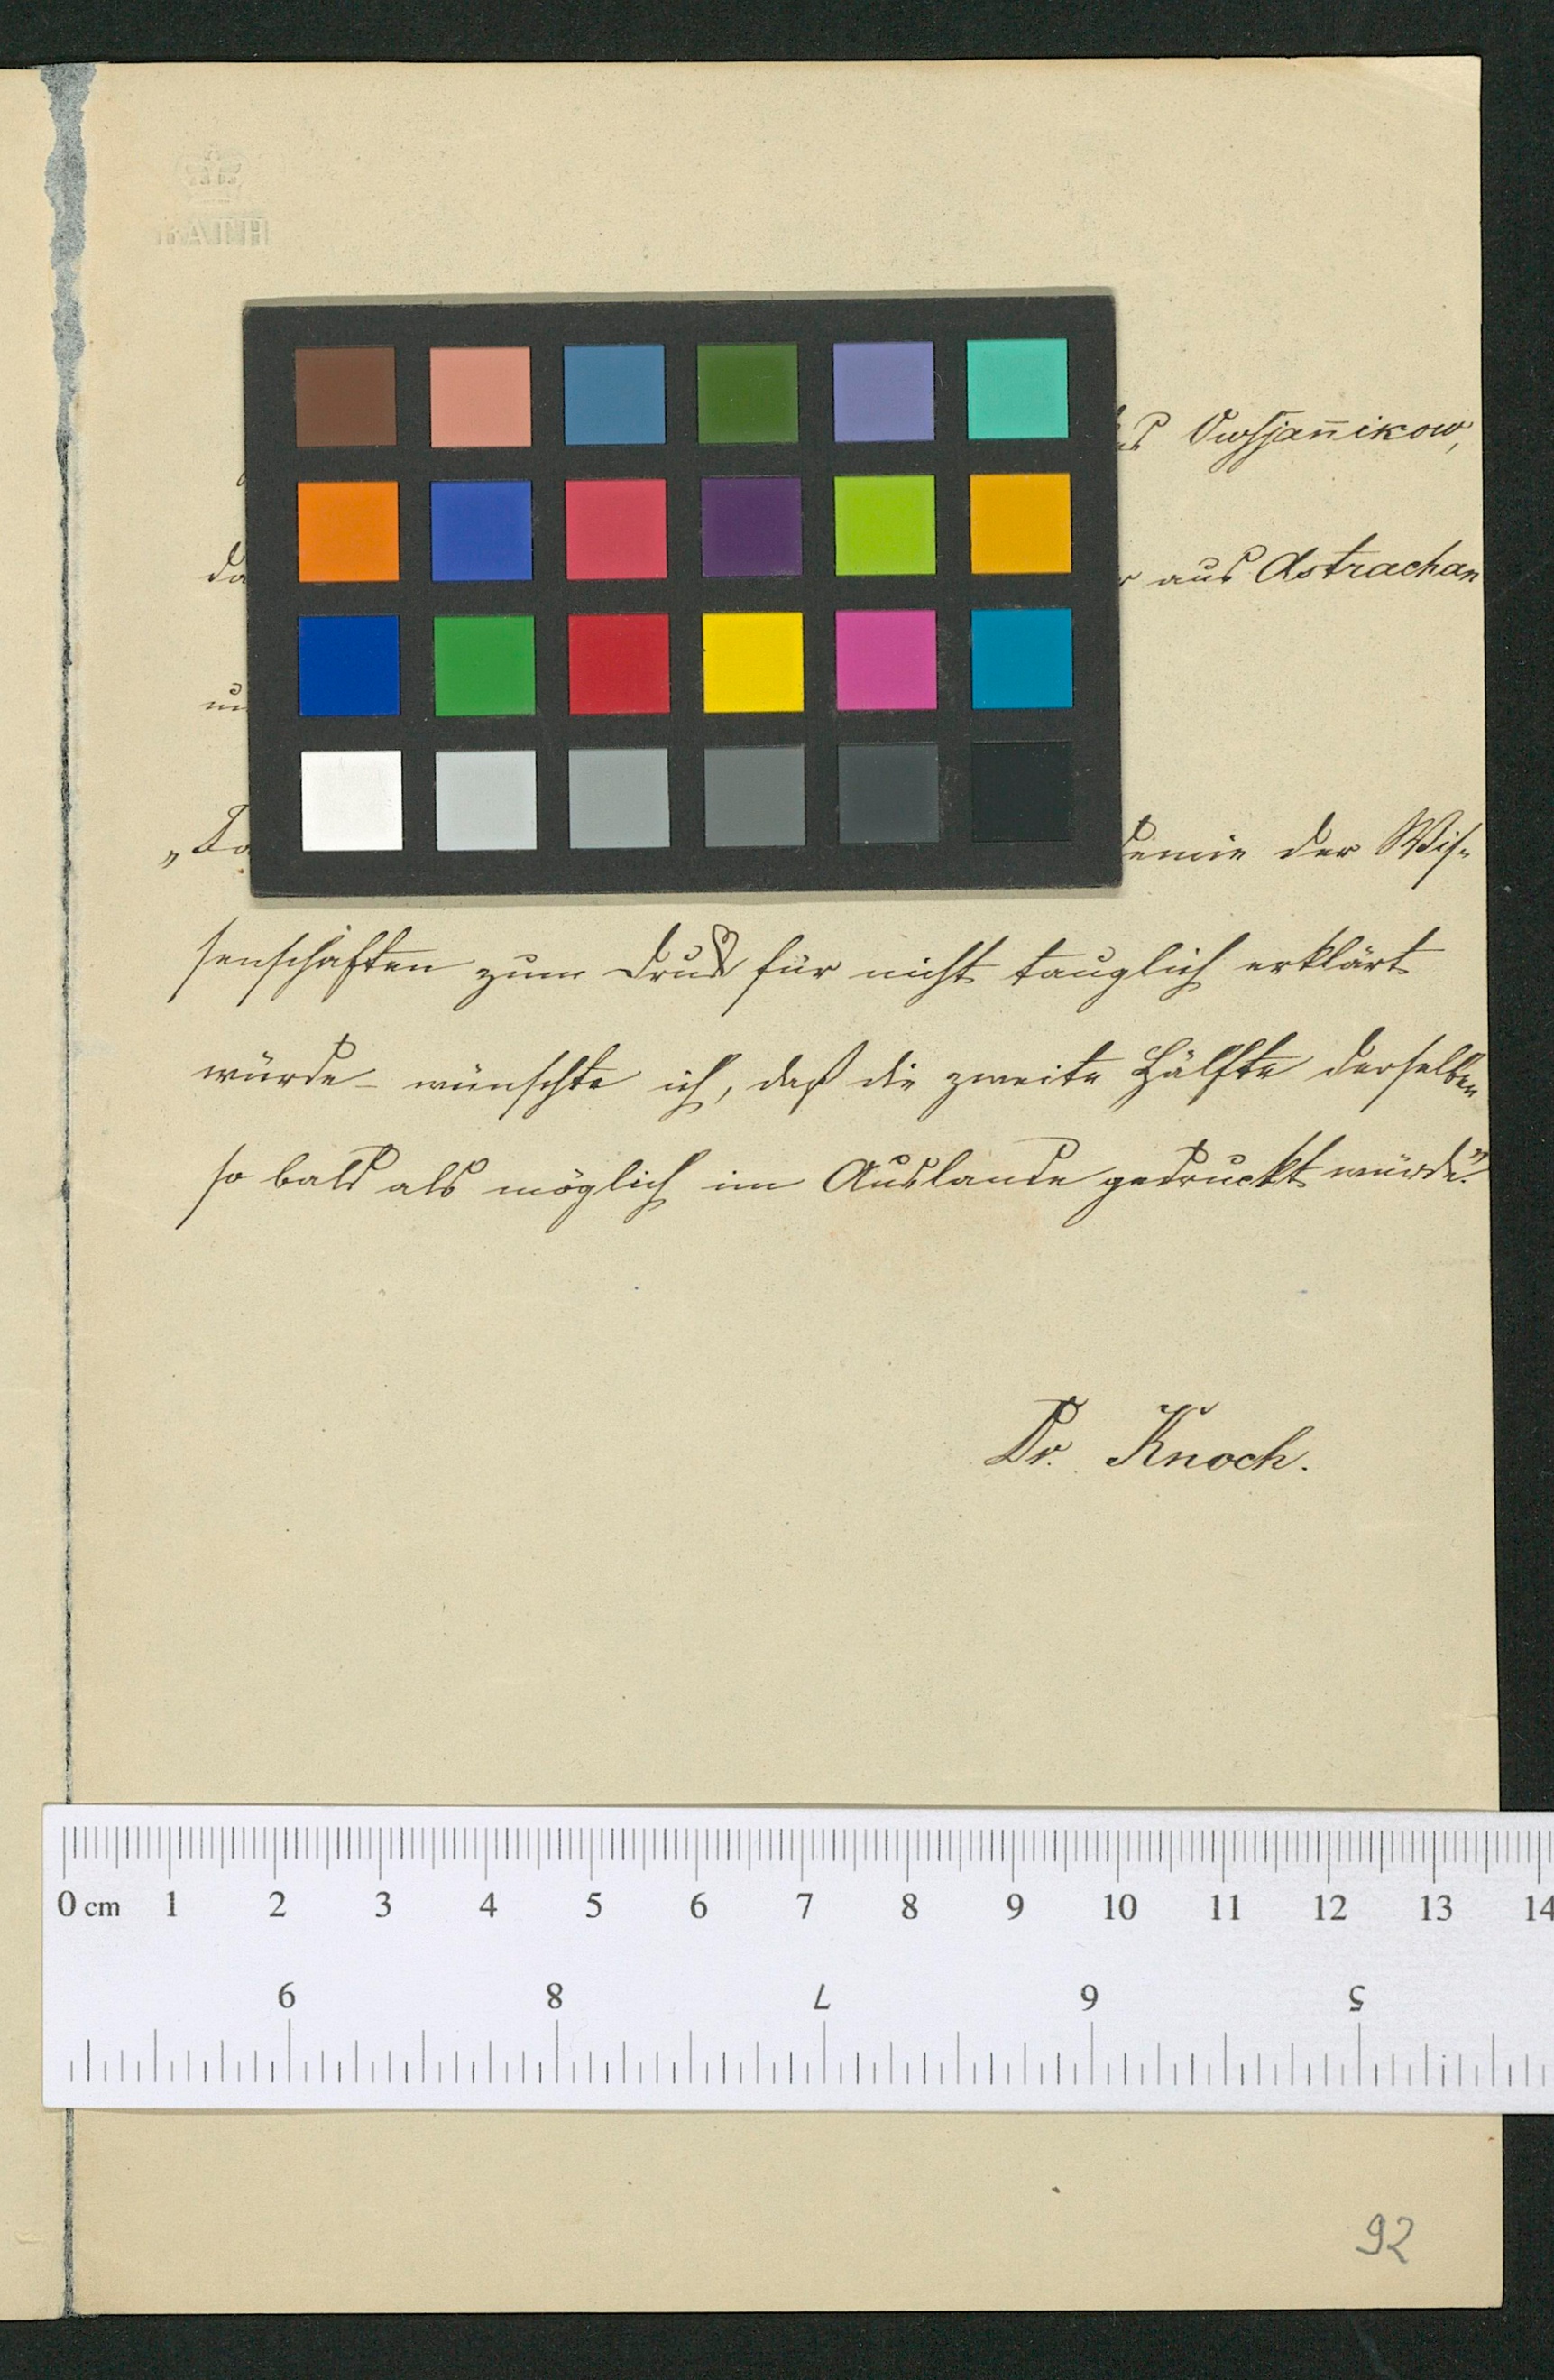 Owsjan̄ikow,
aus Astrachan
der Wis-
senschaften zum Druck für nicht tauglich erklärt
würde – wünschte ich, daß die zweite Hälfte derselben
so bald als möglich im Auslande gedruckt würde."
Dr. Knoch.
0 cm 1 2 3 4 5 6 7 8 9 10 11 12 13 14
9 8 7 6 5
92